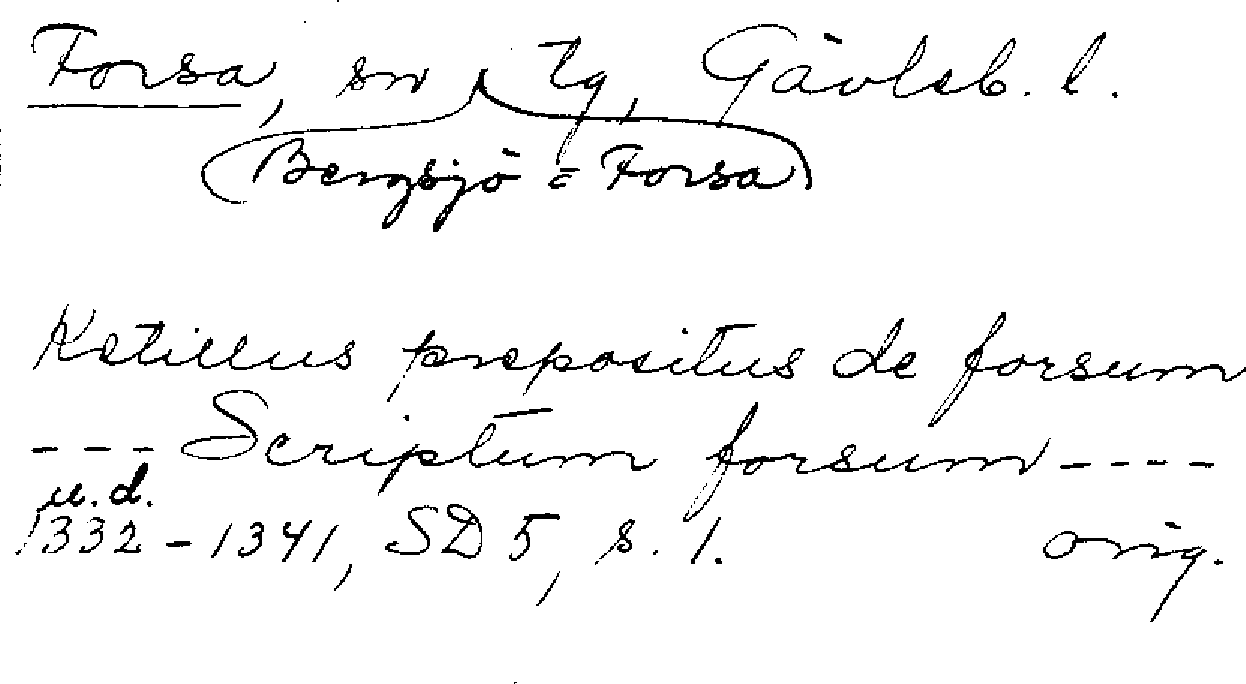 Forsa, sn Tg, Gävleb. l.
(Bergsjö = Forsa)
Ketillus prepositus de forsum
--- Scriptum forsum ----
u.d.
1332-1341, SD 5, s. 1. orig.